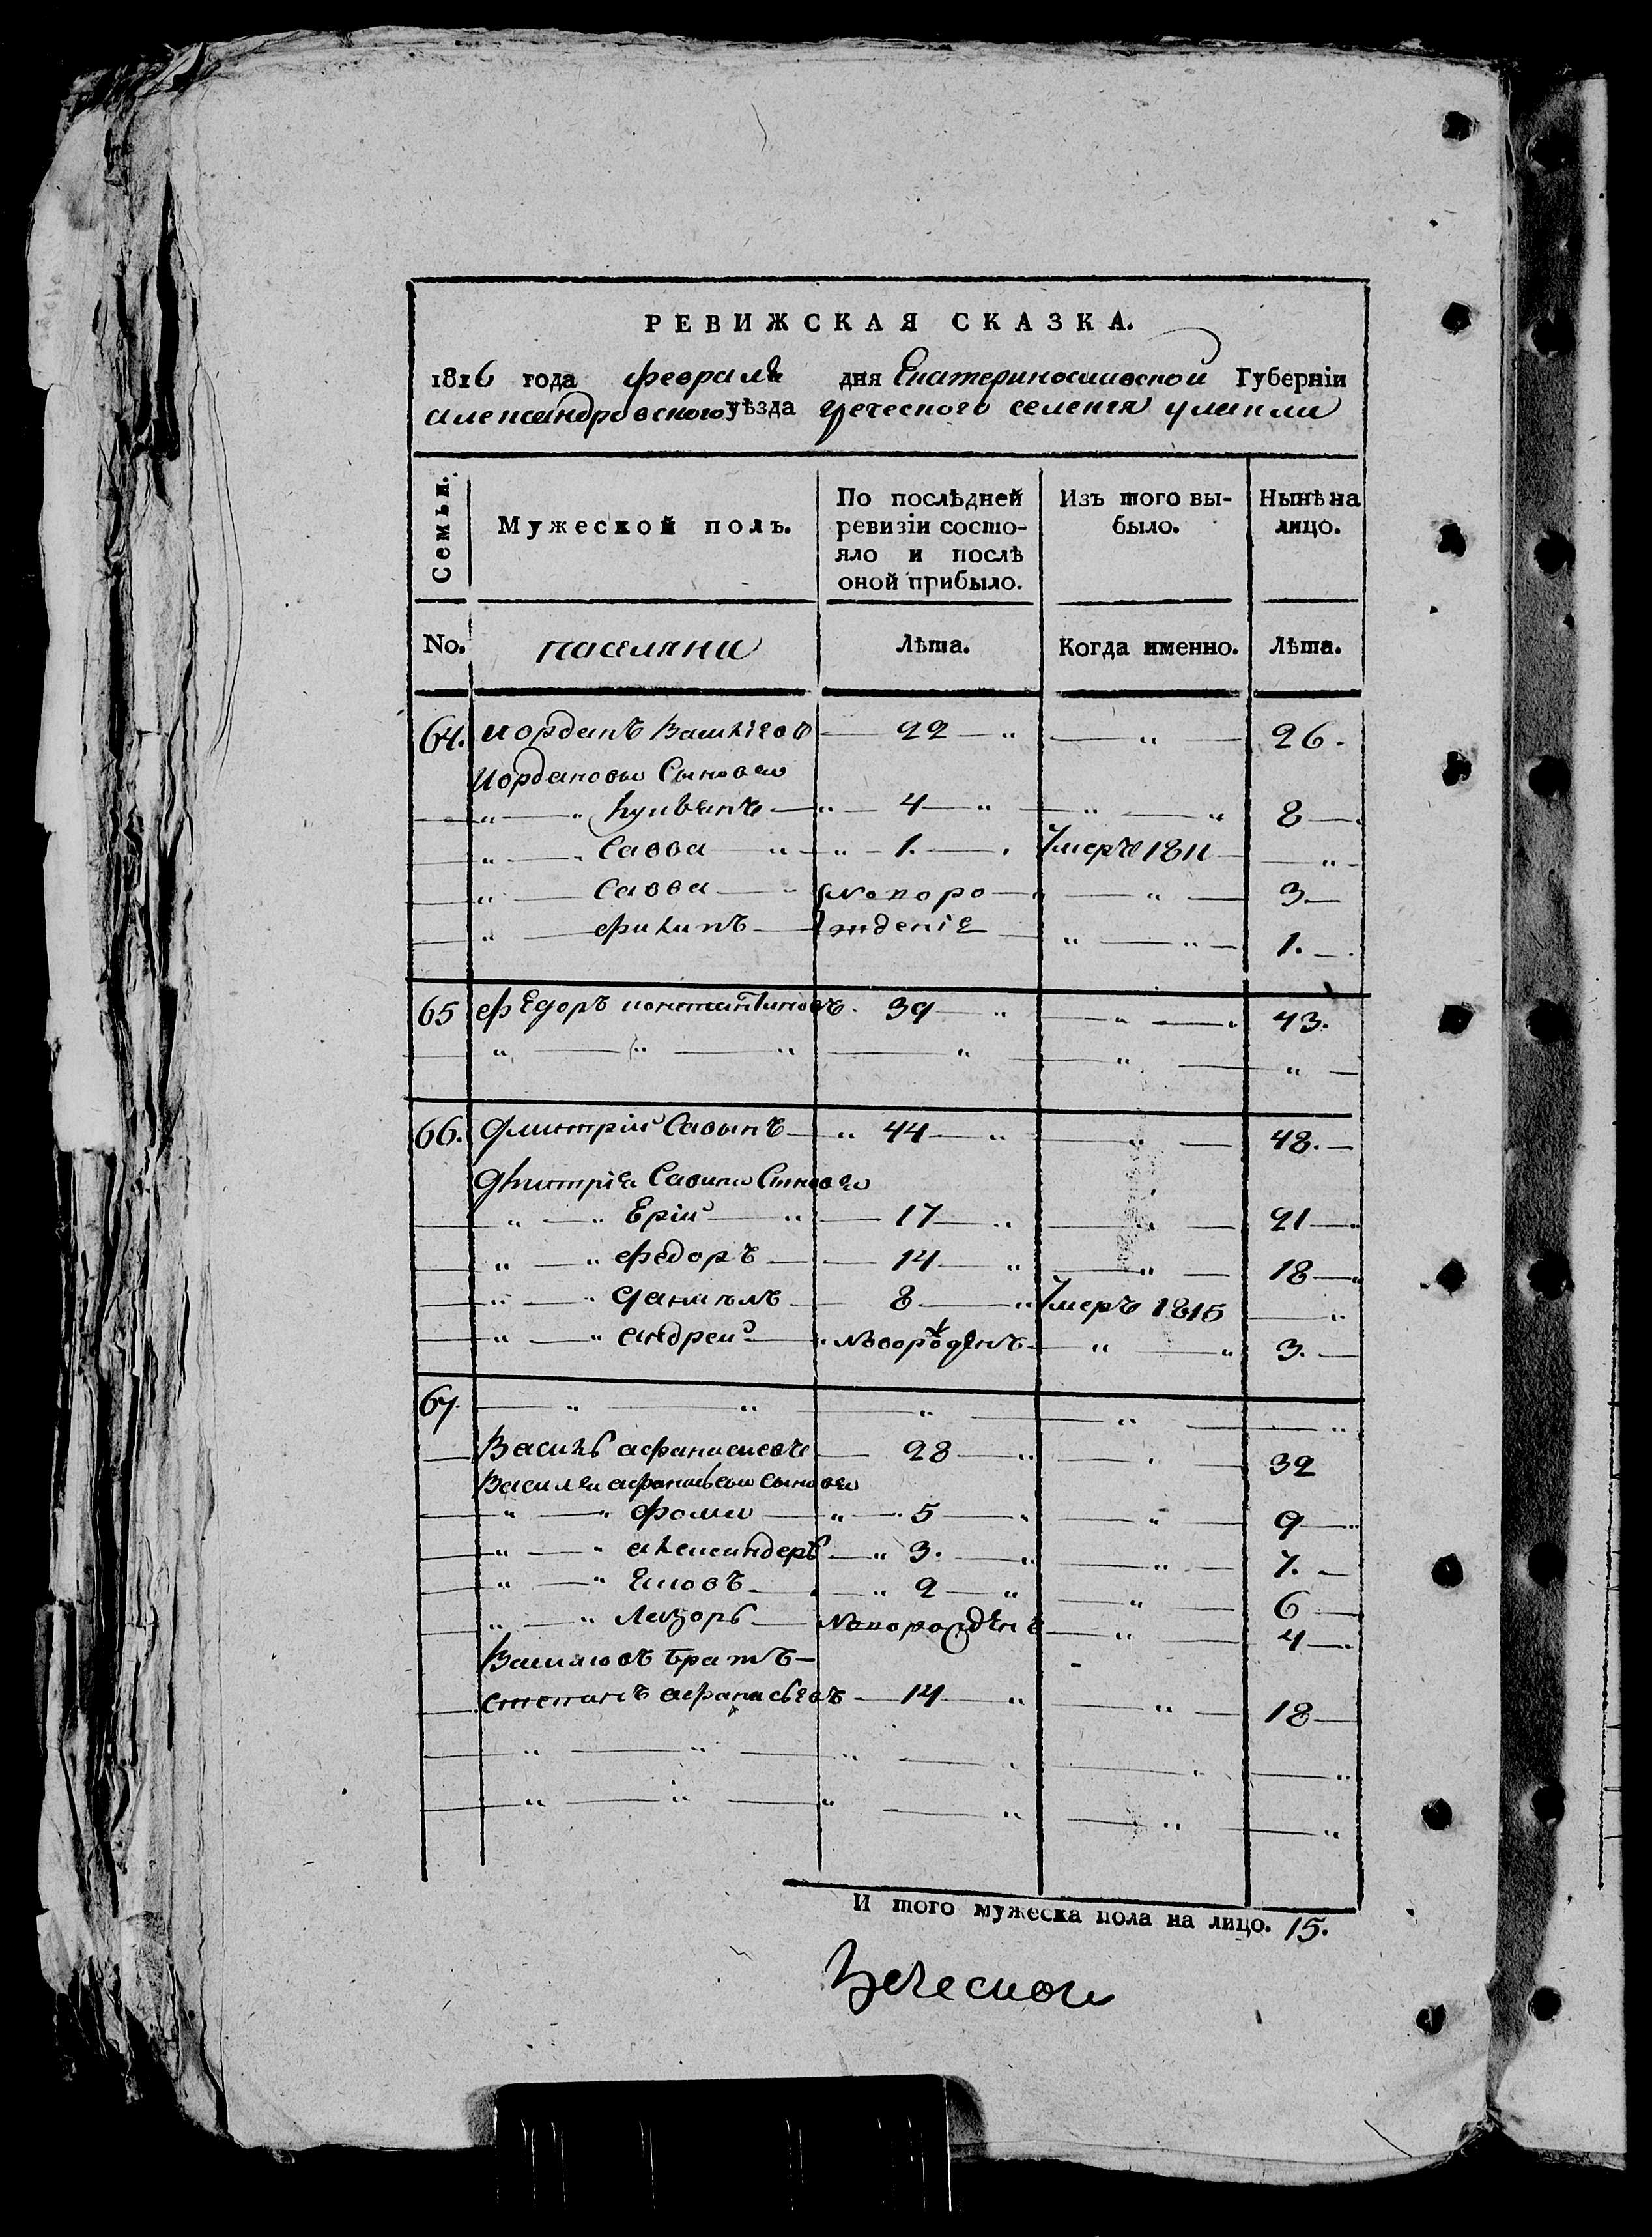 РЕВИЖСКАЯ СКАЗКА.
1816 года февраля дня Екатеринославской Губерніи
александровского уѣзда греческого селенія улаклы
Семьи. Мужеской полъ. По послѣдней ревизіи состояло и послѣ оной прибыло. Изъ того выбыло. Нынѣ на лицо.
No. паселяни Лѣта. Когда именно. Лѣта.
64. иорданъ Васильевъ — 22 — „ — „ — 26.
Иордановы Сыновья
„ — „ — „ — 4 — „ — „ — „ 8 —
„ — „ Савва — „ — „ — 1. — . Умеръ 1811 — „ —
„ — Савва — новоро — „ — „ — 3 —
„ — филипъ — жденіе — „ — „ — 1. —
65 федоръ константиновъ. 39 — „ — „ — „ 43.
„ — „ — „ — „ — „ — „ —
66. дмитрій Савынъ — „ 44 — „ — „ — 48. —
дмитрія Савина Сыновья
„ — „ Ерій — „ — 17 — „ — „ — 21 — „
„ — „ федоръ — 14 — „ — „ — 18 — „
„ — „ данилъ — 8 — „ Умеръ 1815 — „
„ — „ андрей — „ новорожденъ — „ — „ 3. —
67. — „ — „ — „ — „ — „
— Василь афанасиевъ — 28 — „ — „ — 32
Василия афанасьева сыновья
„ — „ фома — „ — „ 5 — „ — „ — 9 — „
„ — „ александеръ — „ 3. — „ — „ — 7. —
„ — „ Яковъ — „ — „ 2 — „ — „ — 6 —
„ — „ Лазорь — новорожденъ — „ — 4 —
Васильевъ братъ —
степанъ афанасьевъ — 14 — „ — „ — 18 —
„ — „ — „ — „ — „ — „
„ — „ — „ — „ — „ — „
И того мужеска пола на лицо. 15.